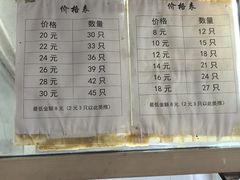 价格表
价格 数量
20 元 30 只
22 元 33 只
24 元 36 只
26 元 39 只
28 元 42 只
30 元 45 只
最低金额 8 元（2 元 3 只以此类推）
价格表
价格 数量
8 元 12 只
10 元 15 只
12 元 18 只
14 元 21 只
16 元 24 只
18 元 27 只
最低金额 8 元（2 元 3 只以此类推）